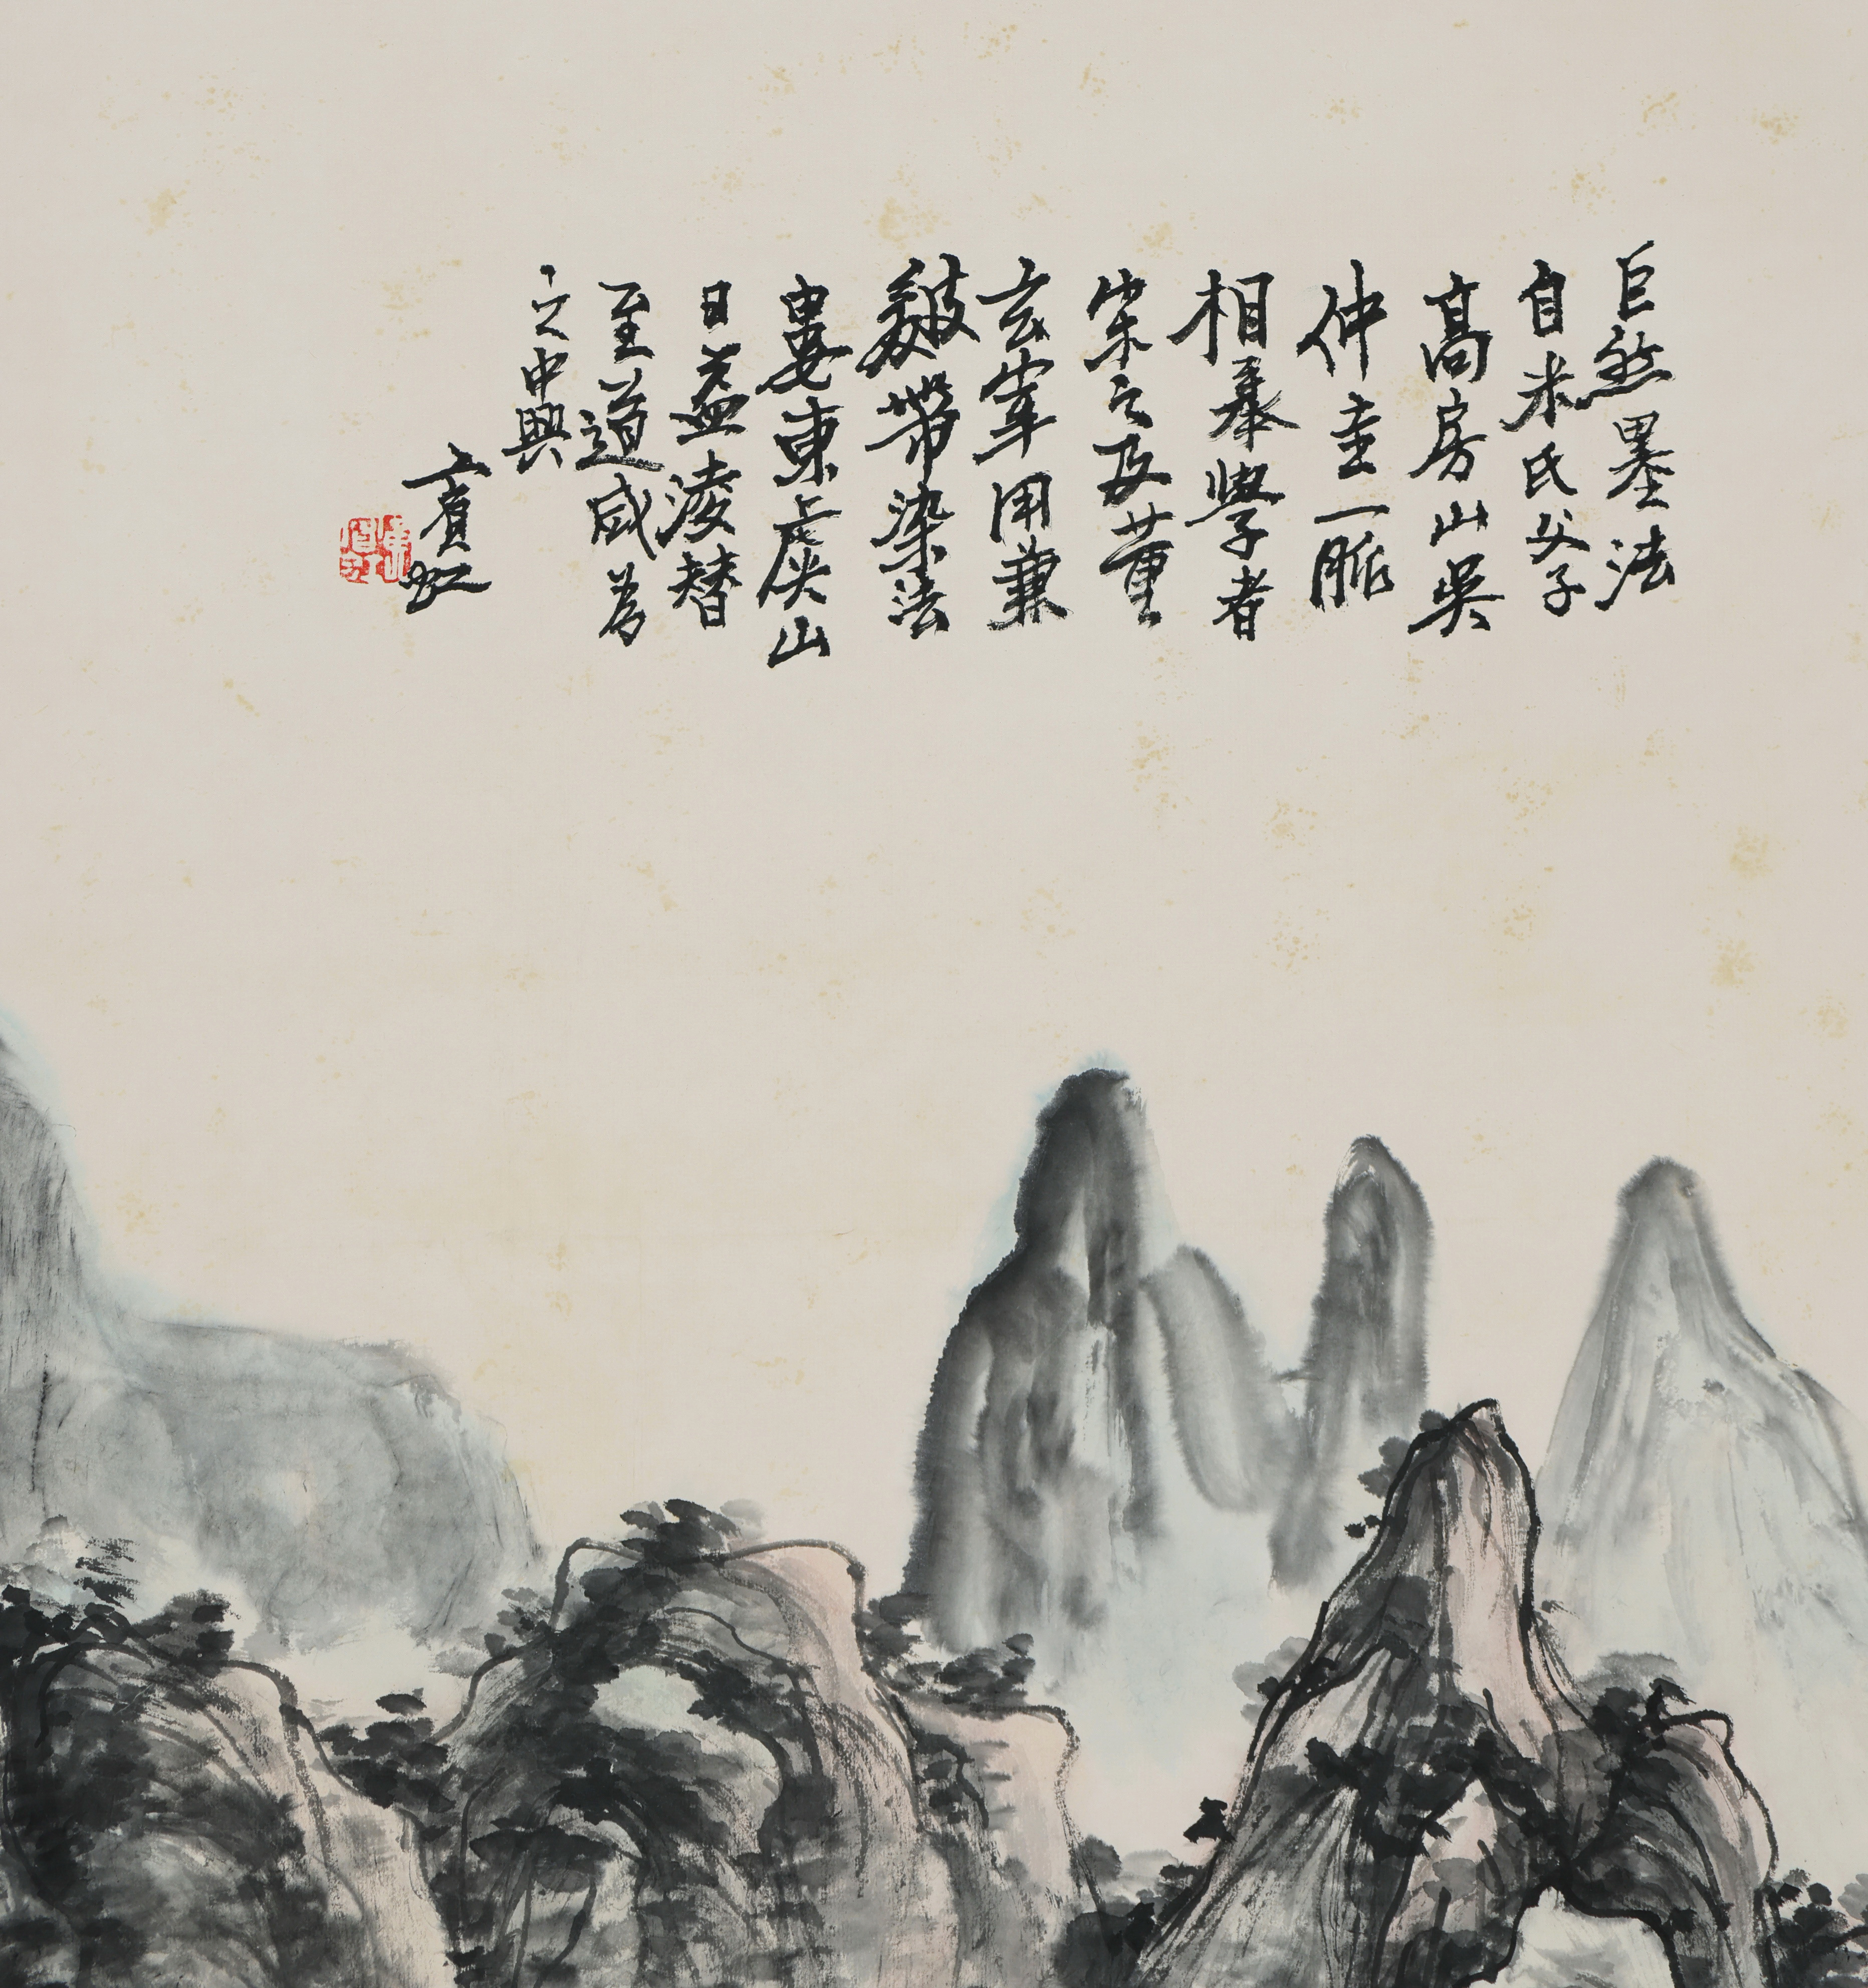 巨然墨法
自米氏父子
高房山吳
仲圭一脈
相承學者
宋之及董
玄宰用兼
皴帶染法
婁東虞山
日益淩替
至道咸為
之中興
賓虹